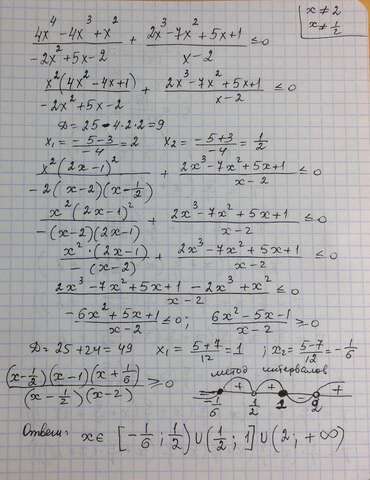 x ≠ 2
x ≠ 1/2
(4x^4 - 4x^3 + x^2)/(-2x^2 + 5x - 2) + (2x^3 - 7x^2 + 5x + 1)/(x - 2) ≤ 0
x^2(4x^2 - 4x + 1)/(-2x^2 + 5x - 2) + (2x^3 - 7x^2 + 5x + 1)/(x - 2) ≤ 0
D = 25 - 4·2·2 = 9
x₁ = (-5 - 3)/(-4) = 2    x₂ = (-5 + 3)/(-4) = 1/2
x^2(2x - 1)^2/(-2(x - 2)(x - 1/2)) + (2x^3 - 7x^2 + 5x + 1)/(x - 2) ≤ 0
x^2(2x - 1)^2/(-(x - 2)(2x - 1)) + (2x^3 - 7x^2 + 5x + 1)/(x - 2) ≤ 0
x^2·(2x - 1)/(-(x - 2)) + (2x^3 - 7x^2 + 5x + 1)/(x - 2) ≤ 0
(2x^3 - 7x^2 + 5x + 1 - 2x^3 + x^2)/(x - 2) ≤ 0
(-6x^2 + 5x + 1)/(x - 2) ≤ 0; (6x^2 - 5x - 1)/(x - 2) ≥ 0
D = 25 + 24 = 49    x₁ = (5 + 7)/12 = 1 ; x₂ = (5 - 7)/12 = -1/6
(x - 1/2)(x - 1)(x + 1/6)/((x - 1/2)(x - 2)) ≥ 0
метод интервалов
- + + - +
-1/6 1/2 1 2
Ответ: x ∈ [-1/6; 1/2) ∪ (1/2; 1] ∪ (2; +∞)